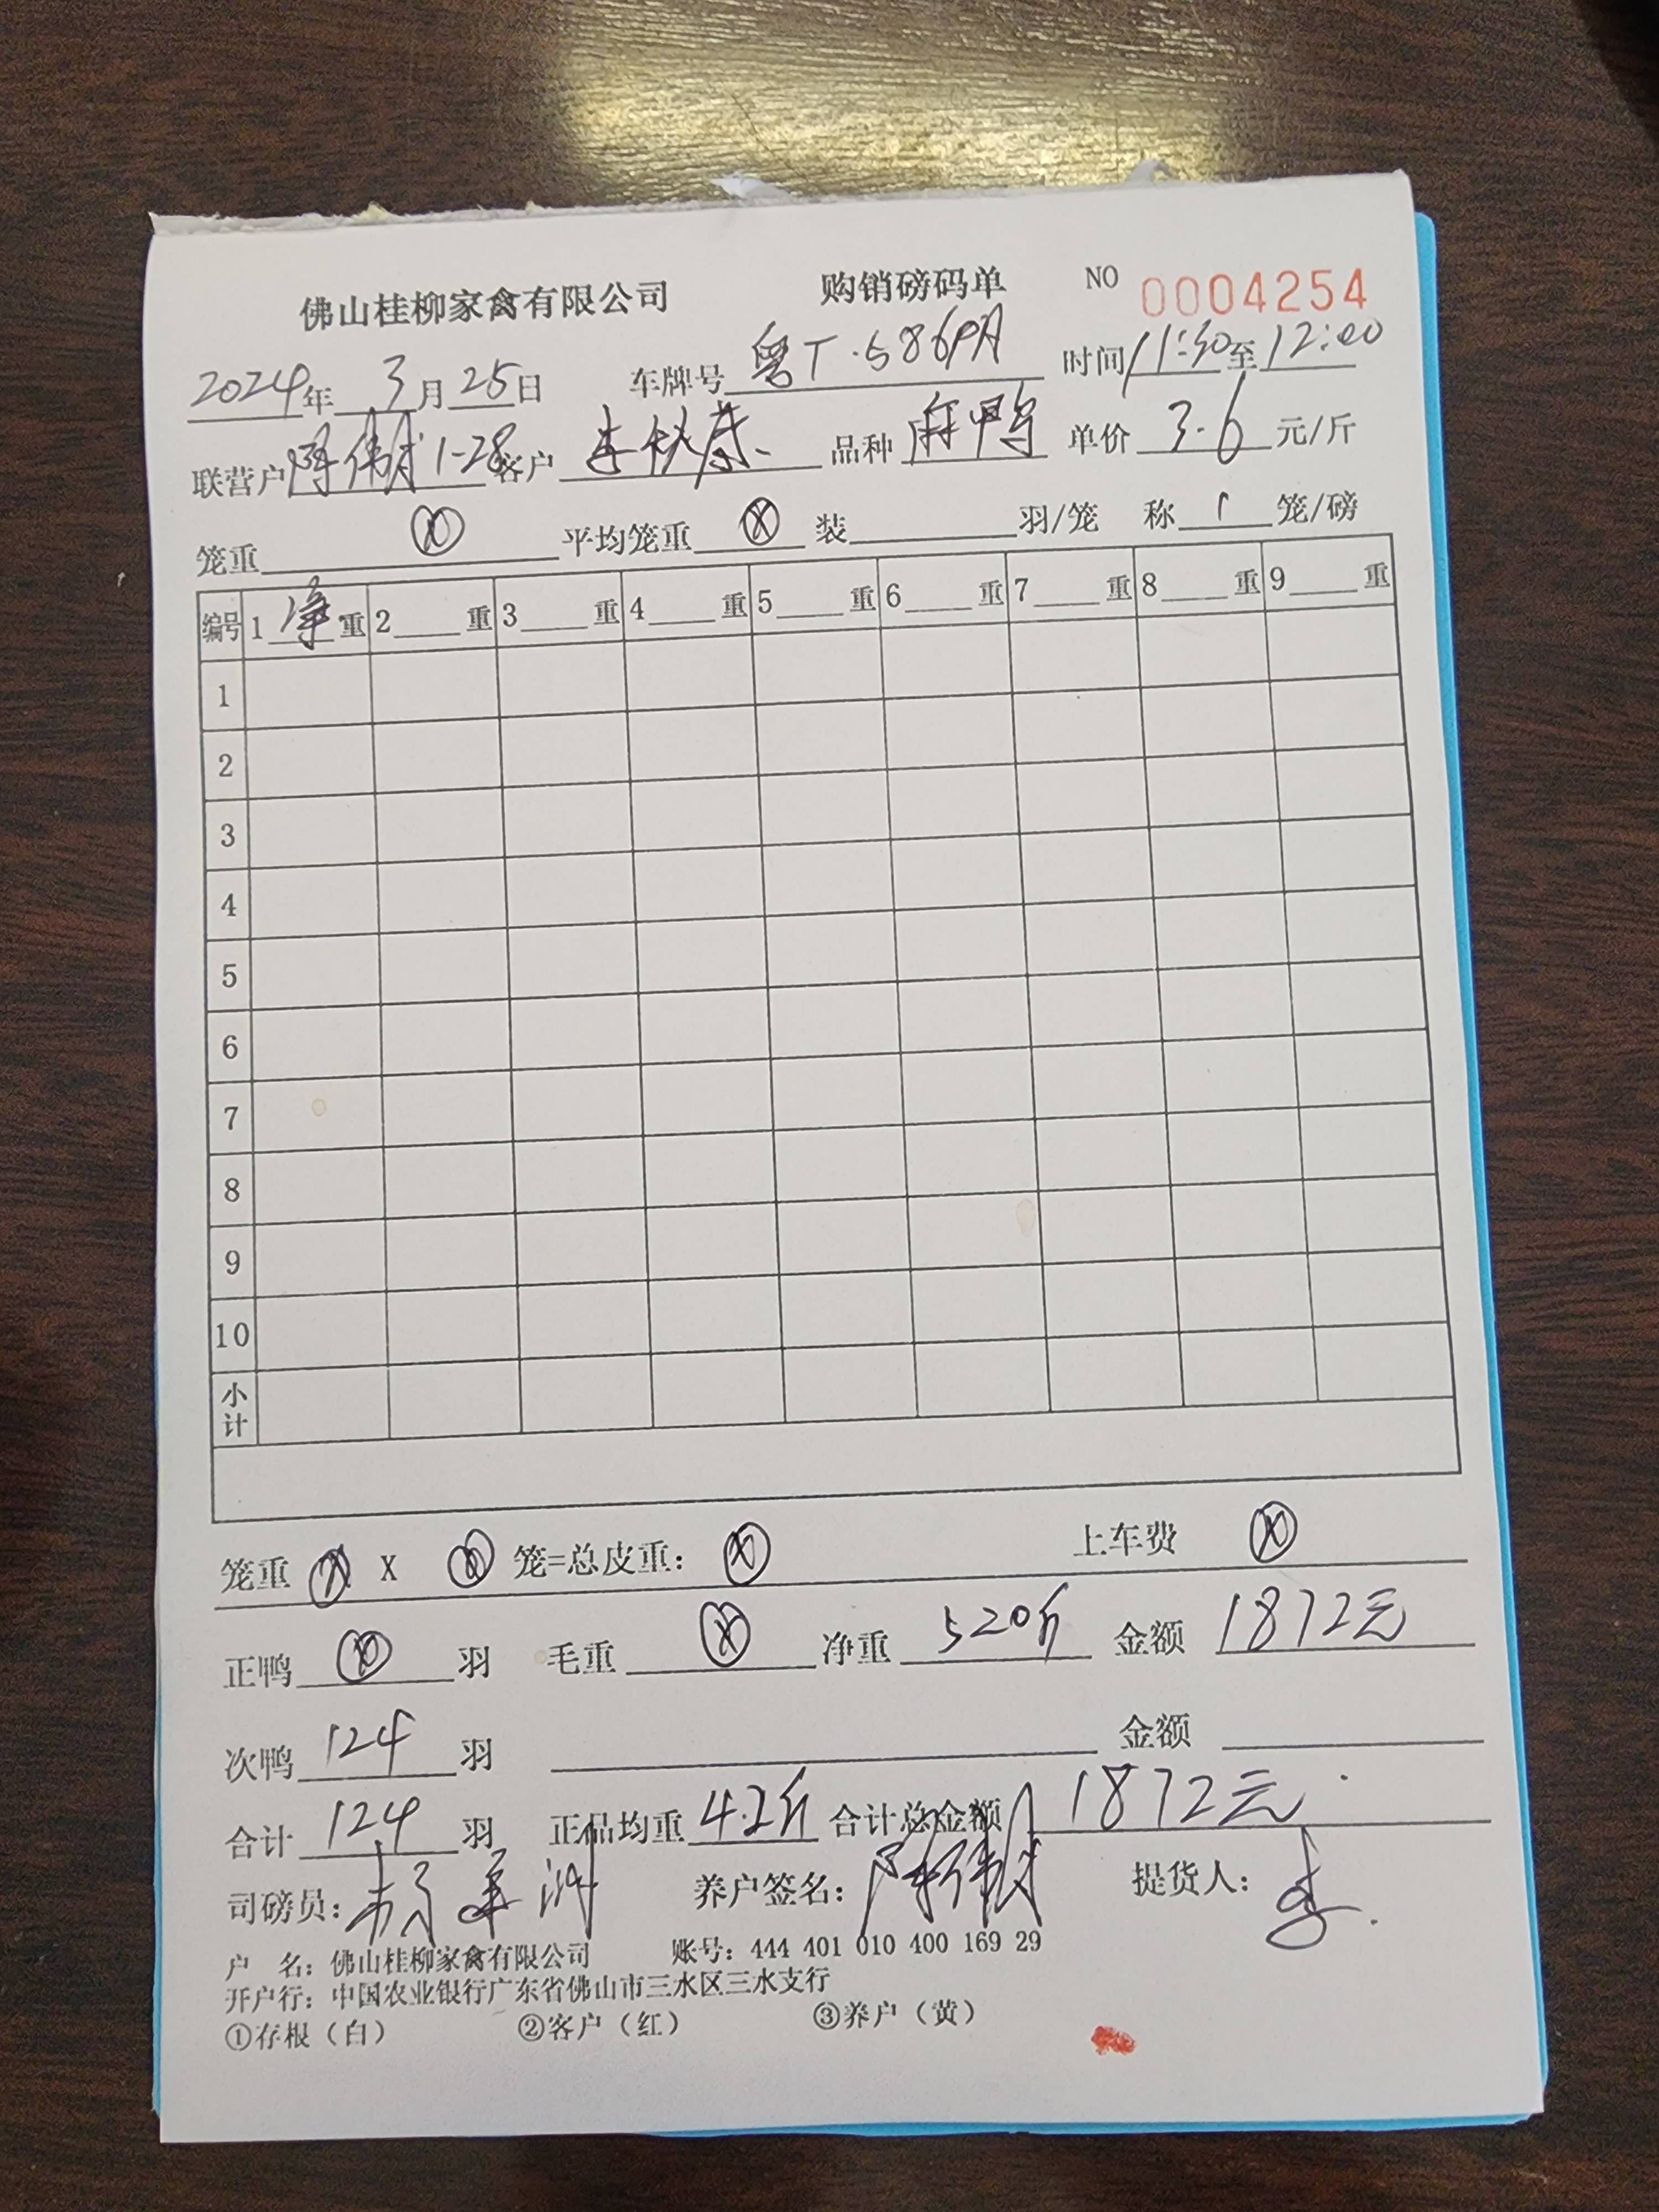 佛山桂柳家禽有限公司 购销磅码单 NO 0004254
2024年 3月25日 车牌号 粤T·586 时间 11:30至12:00
联营户 陈伟 1-28 客户 李秋荣 品种 麻鸭 单价 3.6 元/斤
笼重 ⓧ 平均笼重 ⓧ 装 羽/笼 称 1 笼/磅
编号 1 净 重 2 重 3 重 4 重 5 重 6 重 7 重 8 重 9 重
1
2
3
4
5
6
7
8
9
10
小计
笼重 ⓧ X ⓧ 笼=总皮重: ⓧ 上车费 ⓧ
正鸭 ⓧ 羽 毛重 ⓧ 净重 520斤 金额 1872元
次鸭 124 羽 金额
合计 124 羽 正品均重 4.2斤 合计总金额 1872元
司磅员: 养户签名: 陈伟 提货人: 李
户 名: 佛山桂柳家禽有限公司 账号: 444 401 010 400 169 29
开户行: 中国农业银行广东省佛山市三水区三水支行
①存根（白） ②客户（红） ③养户（黄）